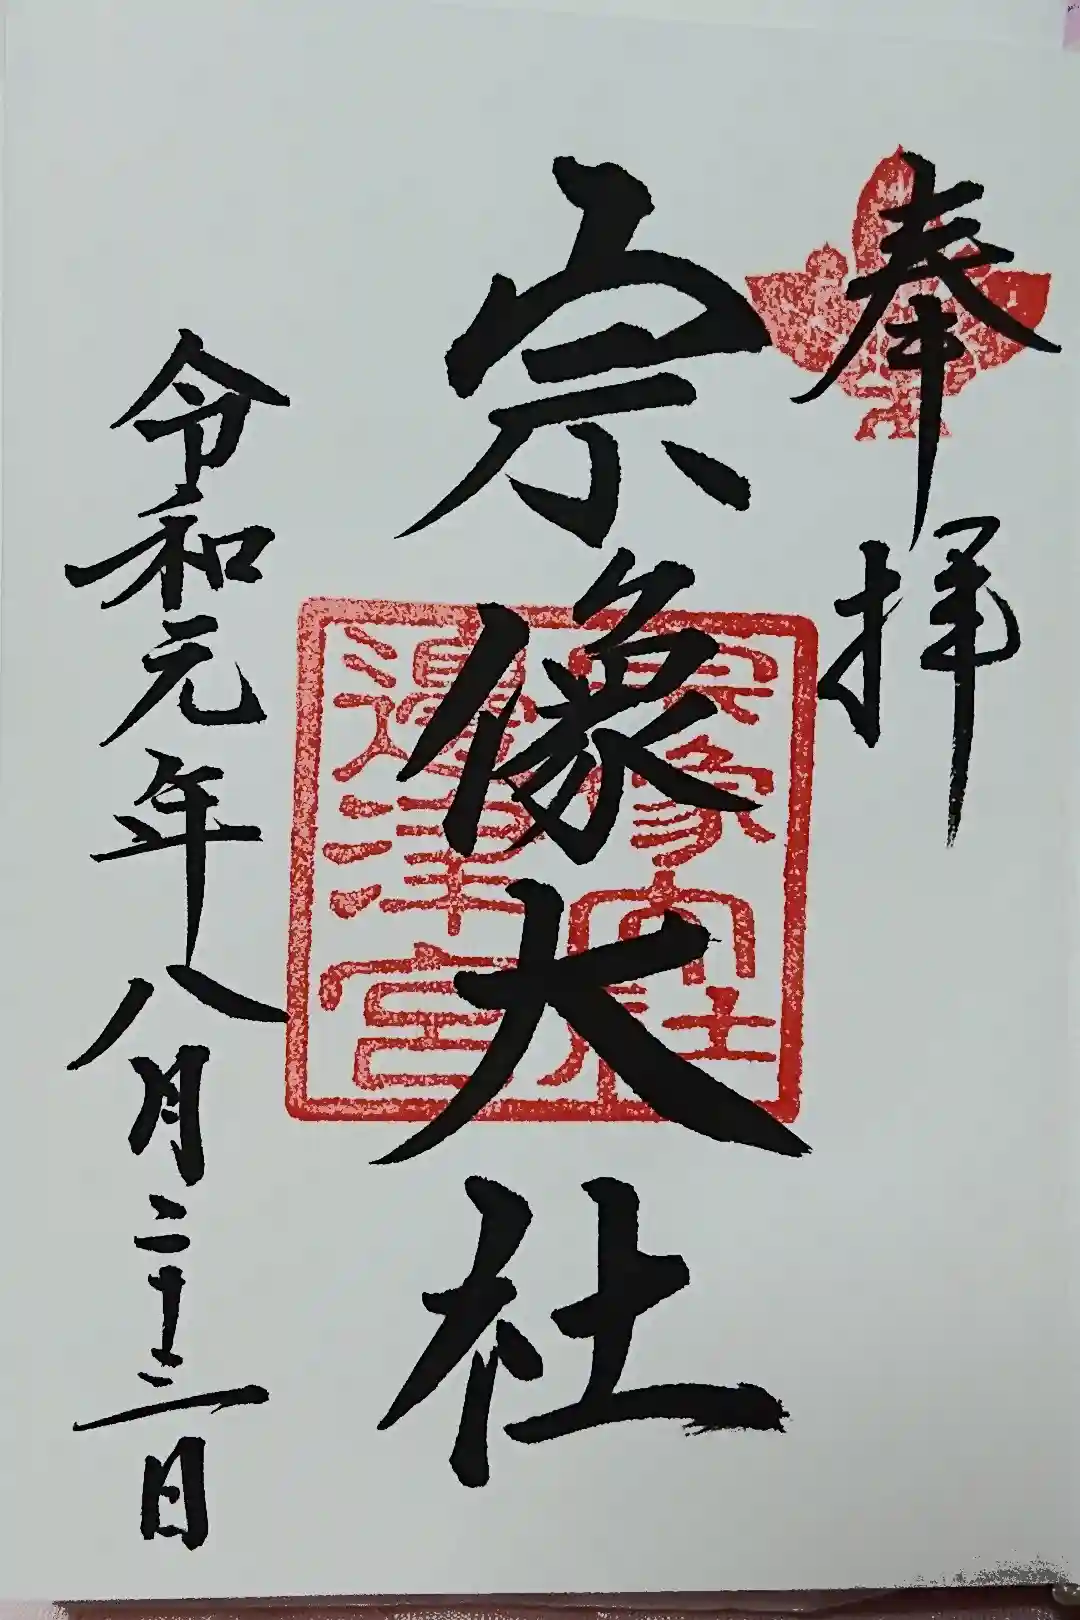 奉拝
宗像大社
宗像宮社
邊津宮
令和元年八月二十三日